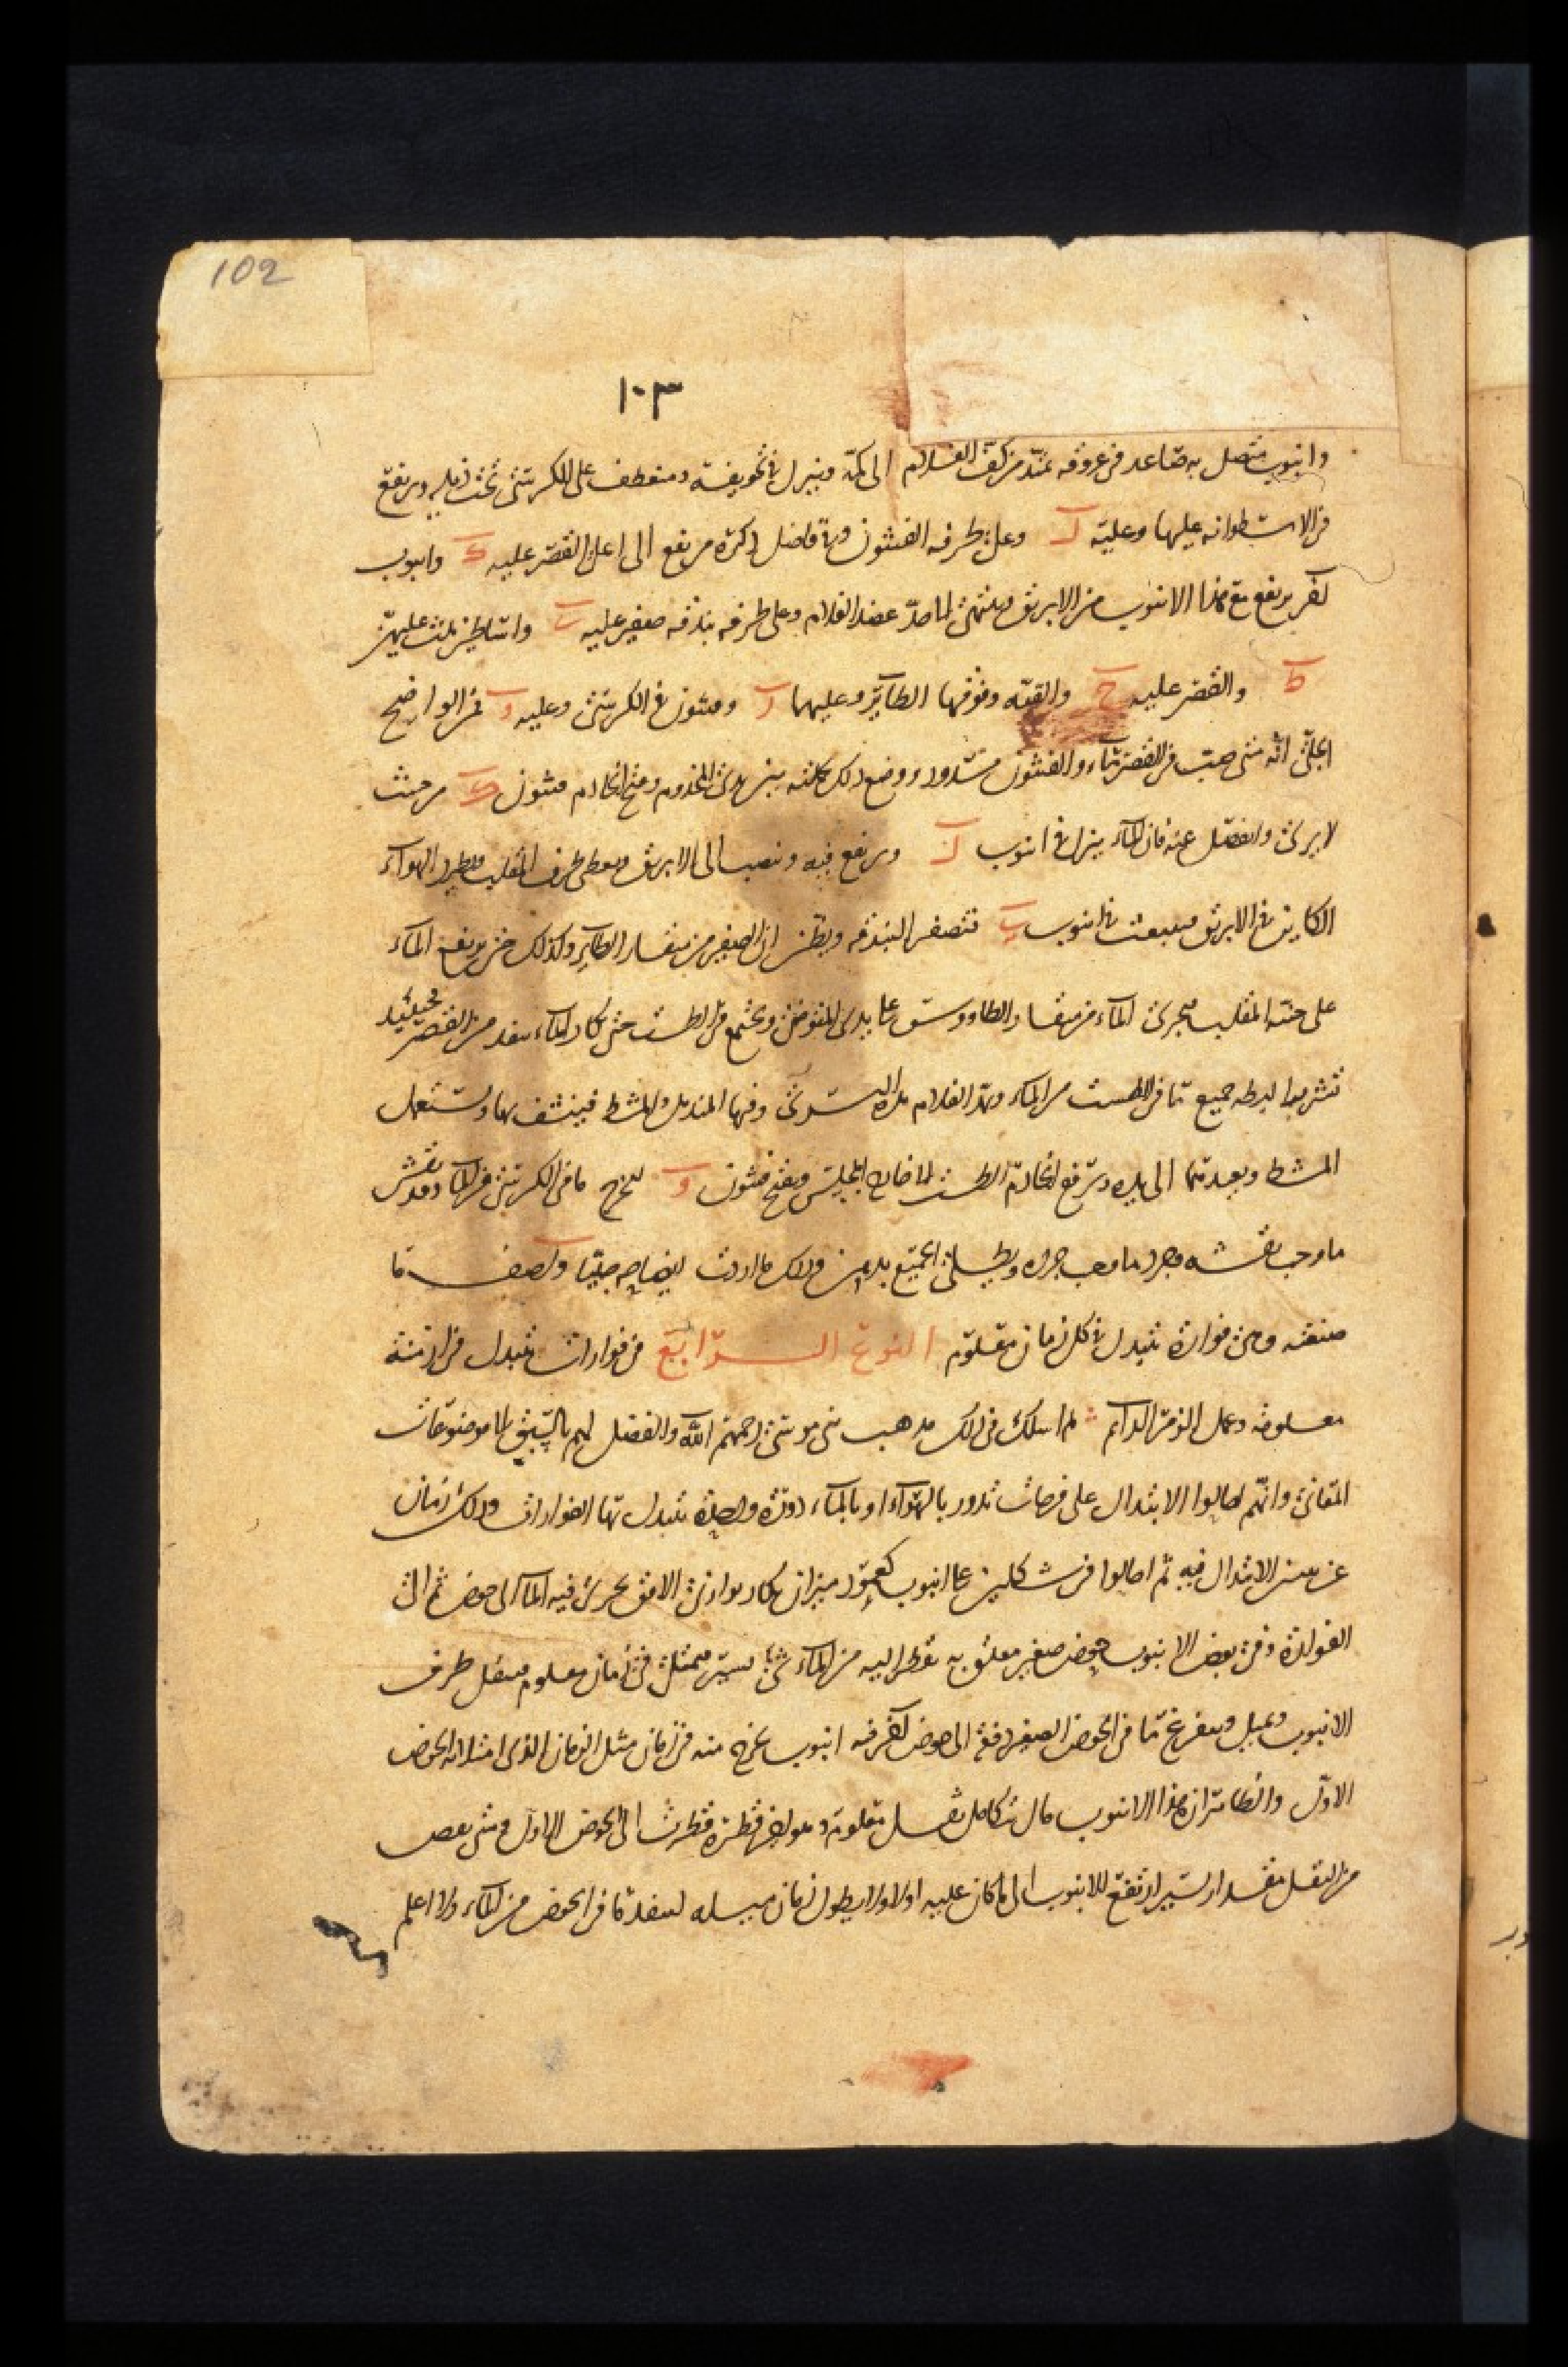 102
١٠٣
وانبوب متصل به صاعد فى عروقه عند من كف الغلام الى كمه وينزل فى تجويفه ومنعطف على الكرسى تحت ذيله ويرتفع
فى الاسطوانه عليها وعليه ل وعلى طرفه الفيثون وبا فاضل ذكره يرتفع الى اعلى القصر عليه ك وانبوب
اخر يرتفع مع هذا الانبوب من الابريق وينتهى الى حد عضد الغلام وعلى طرفه بندقه صغير عليه ب واساطين ثلث عليهن
ط والقصر عليه ح والقبه وفوقها الطائر وعليهما ر وفيثون فى الكرسى وعليه و فمن الواضح
الجلى انه متى صب فى القصر ماء والفيثون مسدود ووضع ذلك كله بين يدى المخدوم وفتح الخادم فيثون من حيث
لا يرى وانفصل عنه فان الماء ينزل فى انبوب ل ويرتفع فيه وينصب الى الابريق ويعطى طرف المقلب ويطرد الهواء
الكاين فى الابريق فينبعث فى انبوب ب فتصفر البندقه ويظن ان الصفير من منقار الطاير ولذلك حين يرتفع الماء
على حنيه المقلب فيجرى الماء من منقار الطاووس على يدى المتوضى ويجتمع فى الطست حتى يكاد الماء ينفد من القصر فحينئذ
تشرب البطه جميع ما فى الطست من الماء ويمد الغلام يده اليسرى وفيها المنديل والمشط فينشف بها ويستعمل
المشط ويعيدهما الى يده ويرفع الخادم الطست الى خارج المجلس ويفتح فيثون و ليخرج ما فى الكرسى من الماء وقد نقش
ما وجب نقشه وجرد ما وجب جرده ويطلى الجميع بدهن وذلك ما اردت ايضاحه جليا واصف ما
صنعته ومن فواره تتبدل فى كل زمان معلوم النوع الرابع فى فوارات تتبدل فى ازمنة
معلومه وعمل الزمر الدايم لم اسلك فى ذلك مذهب بنى موسى رحمهم الله والفضل لهم بالسبق الى موضوعات
المعانى وانهم احالوا الابتدال على فرجات تدور بالهواء او بالماء دورة واحدة تتبدل بها الفوارات وذلك زمان
عن يسير الابتدال فيه ثم احالوا فى شكلين على انبوب كعمود ميزان يكاد يوازى الافق يجرى فيه الماء الى حوض ثم الى
الفوارة وفى بعض الانبوب حوض صغير معلق به تقطر اليه من الماء شئ يسير فيمتلئ فى زمان معلوم فيثقل طرف
الانبوب ويميل ويتفرغ ما فى الحوض الصغير دفعة الى حوض اخر فيه انبوب يخرج منه فى زمان مثل الزمان الذى امتلا به الحوض
الاول والظاهر ان هذا الانبوب مال بتكامل ثقل معلوم وهو اخر قطرة قطرت الى الحوض الاول ومتى نقص
من الثقل مقدار يسير ارتفع الانبوب الى ما كان عليه اولا ولا يطول زمان ميله لينفد ما فى الحوض من الماء ولا اعلم